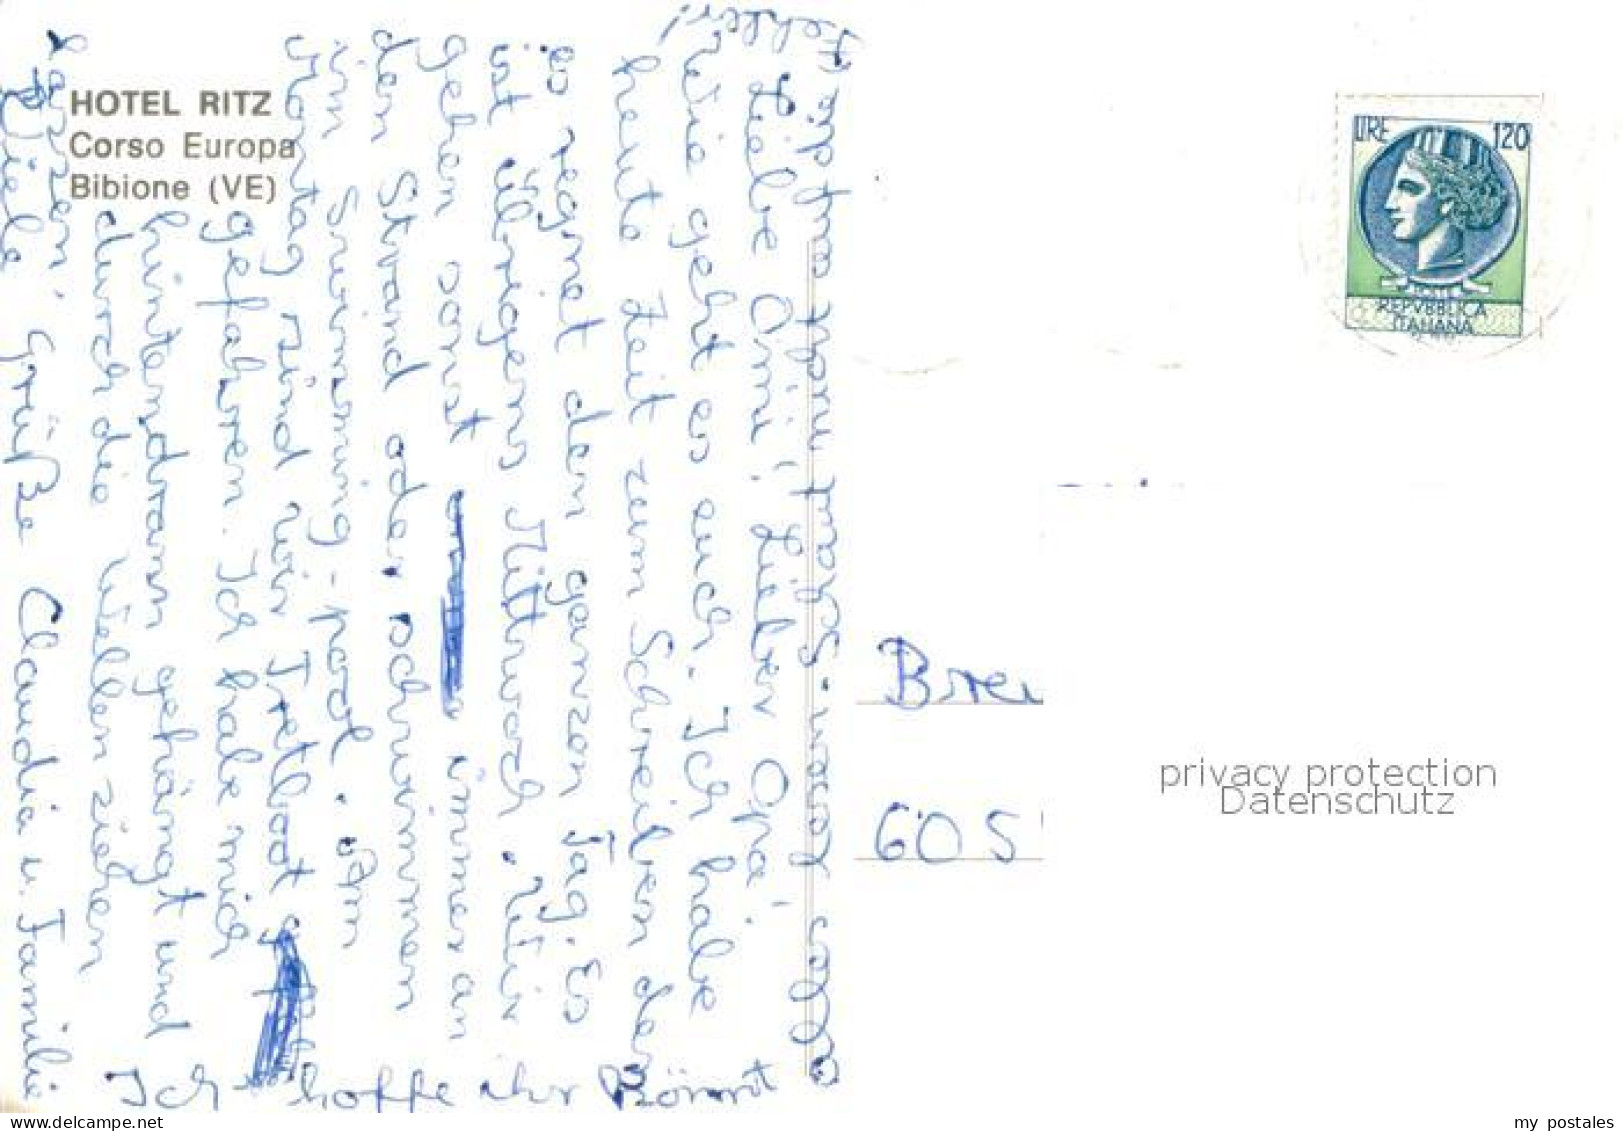 HOTEL RITZ
Corso Europa
Bibione (VE)
LIRE 120
REPVBBLICA
ITALIANA
Liebe Omi! Lieber Opa!
Wie geht es euch. Ich habe
heute Zeit zum Schreiben den
es regnet den ganzen Tag. Es
ist übrigens Mittwoch. Wir
gehen sonst immer an
den Strand oder schwimmen
im Swimming-pool. Am
Montag sind wir Tretboot
gefahren. Ich habe mich
hintendran gehängt und
durch die Wellen ziehen
lassen.
Viele Grüße Claudia u. Familie
Ich hoffe ihr könnt
alles lesen. Schaut nicht
Fehler!
Brei
605
privacy protection
Datenschutz
my postales